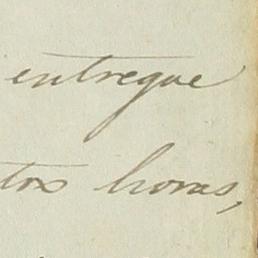 entregue
tos horas,